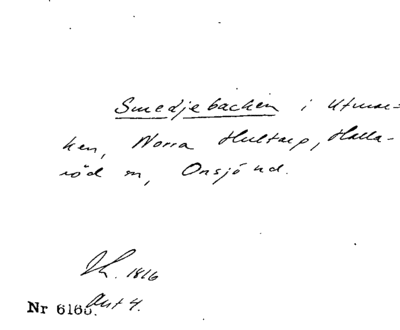 Smedjebacken i Utmar-
ken, Norra Hultarp, Halla-
röd sn, Onsjö hd.
Sk. 1816
Akt 4.
Nr 6160.